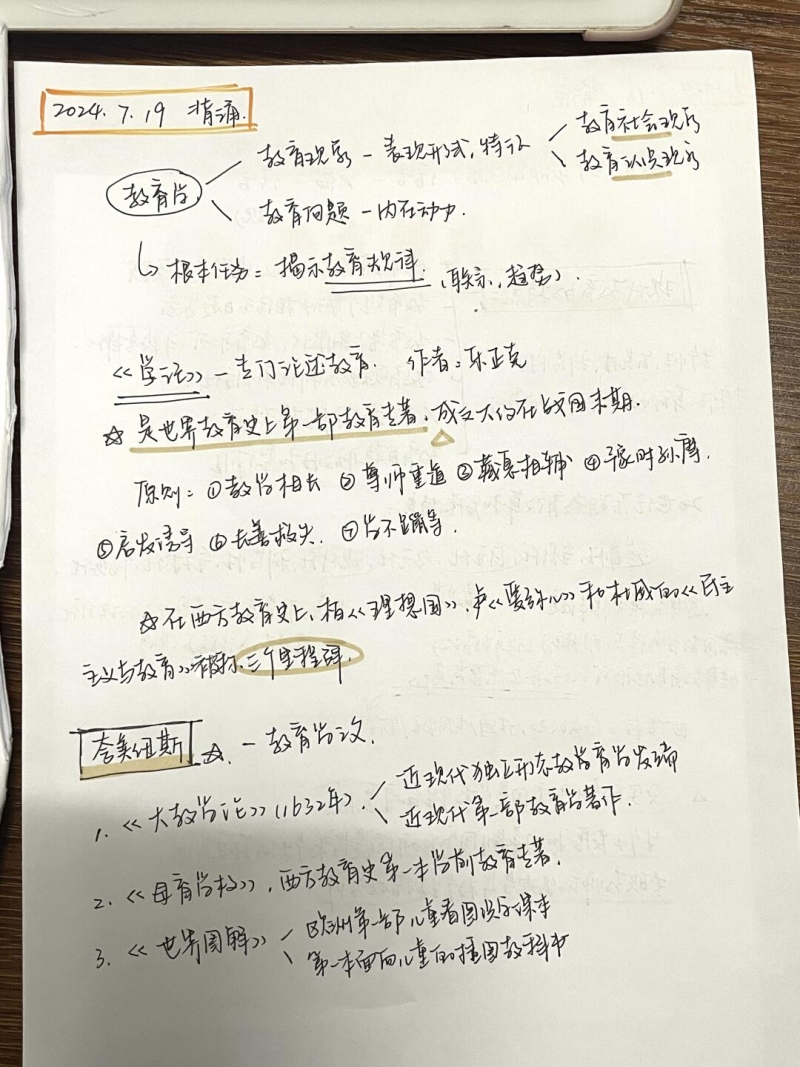 2024.7.19 背诵.
教育现象 - 表现形式, 特认
教育社会现象
教育认识现象
教育学
教育问题 - 内在动力.
根本任务 = 揭示教育规律. (联系, 趋势).
《学记》 - 专门论述教育. 作者: 乐正克
☆ 是世界教育史上第一部教育专著, 成文大约在战国末期.
原则: ①教学相长 ②尊师重道 ③藏息相辅 ④豫时孙摩.
⑤启发诱导 ⑥长善救失. ⑦学不躐等.
☆ 在西方教育史上, 柏《理想国》, 卢《爱弥儿》和杜威的《民主
主义与教育》被称三个里程碑.
夸美纽斯 ☆. - 教育学之父.
1. 《大教学论》(1632年).
近现代独立形态教学育学发端
近现代第一部教育学著作.
2. 《母育学校》, 西方教育史第一本学前教育专著.
3. 《世界图解》
欧洲第一部儿童看图识字课本
第一本面向儿童的插图教科书